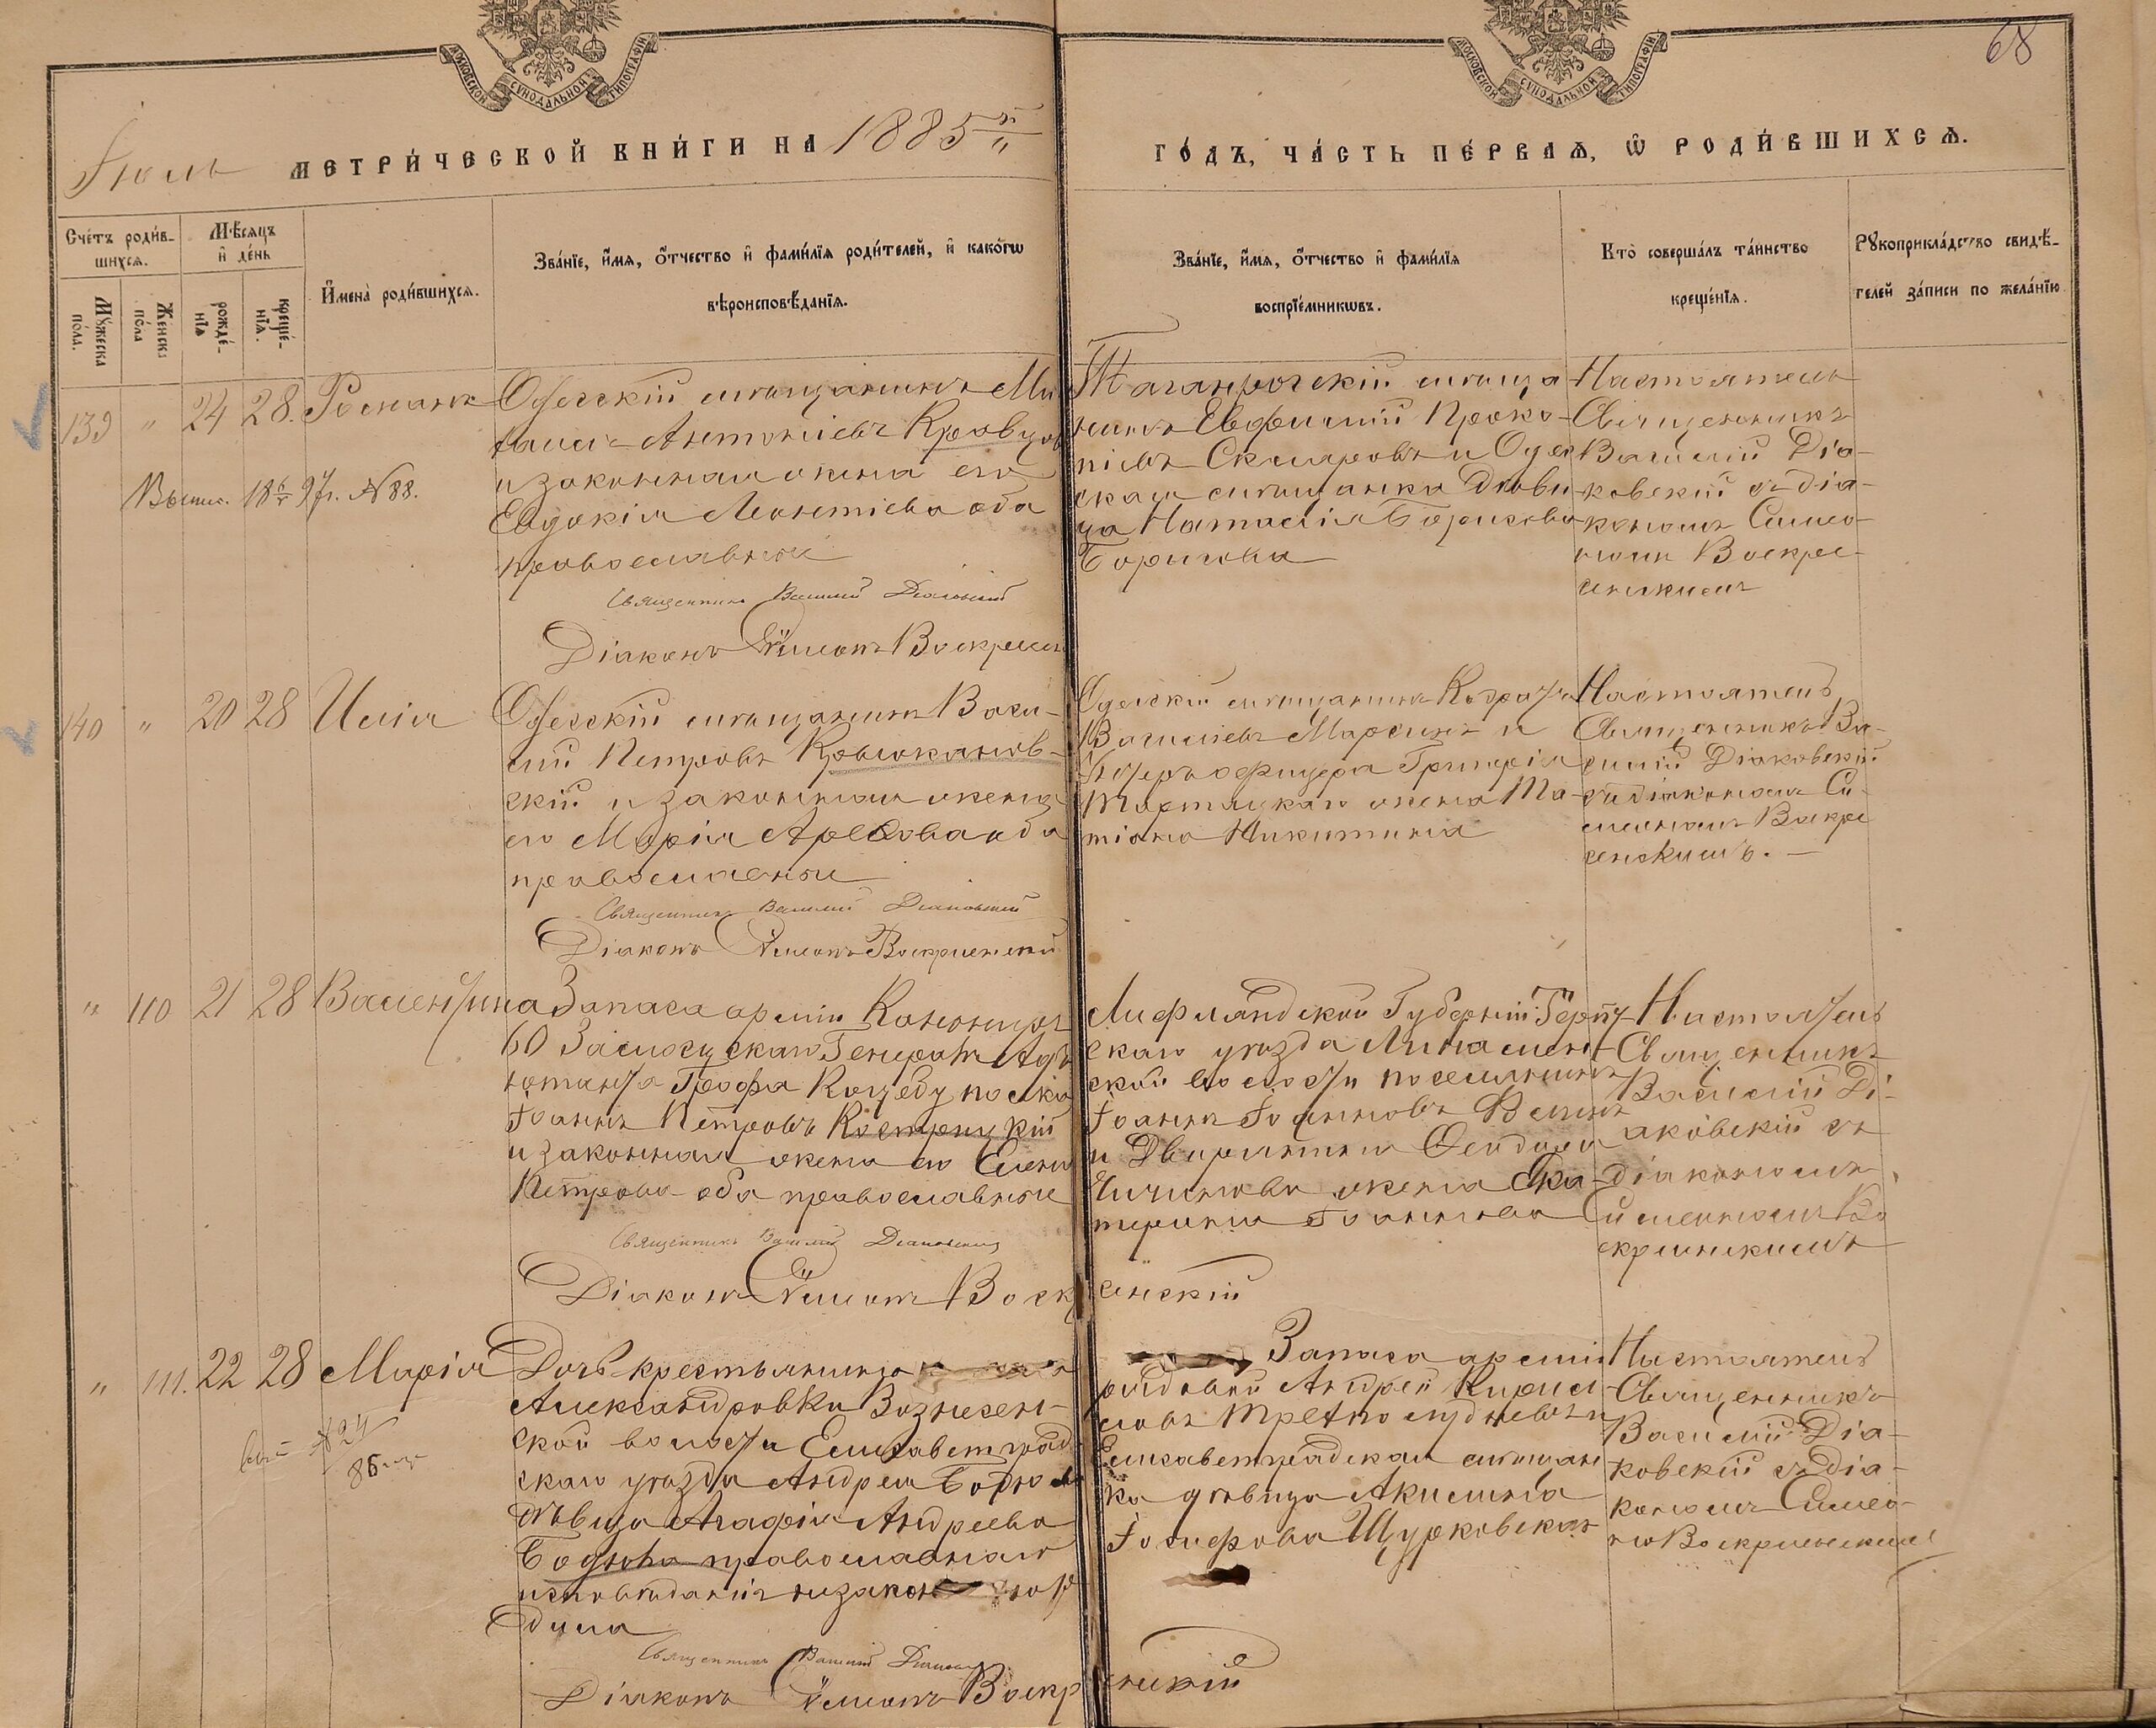 МОСКОВСКОЙ СѴНОДАЛЬНОЙ ТИПОГРАФІИ
МОСКОВСКОЙ СѴНОДАЛЬНОЙ ТИПОГРАФІИ
68
Іюль МЕТРИ́ЧЕСКОЙ КНИ́ГИ НА 1885й
ГО́ДЪ, ЧА́СТЬ ПЕ́РВАѦ, Ѡ҆ РОДИ́ВШИХСѦ.
Сче́тъ роди́в-
шихсѧ.
Мꙋ́жеска по́ла.
Же́нска по́ла
Мѣ́сѧцъ и҆ де́нь
рожде́-нїѧ
креще́-нїѧ.
И҆мена̀ роди́вшихсѧ.
Зва́нїе, и҆́мѧ, ѻ҆́тчество и҆ фами́лїѧ роди́телей, и҆ како́гѡ
вѣроисповѣ́данїѧ.
Зва́нїе, и҆́мѧ, ѻ҆́тчество и҆ фами́лїѧ
воспрїе́мникѡвъ.
Кто̀ соверша́лъ та́инство
креще́нїѧ.
Рꙋкоприкла́дство свидѣ́-
телей за́писи по жела́нїю.
139 " 24 28. Романъ
Выпис. 97г. №88.
Одесскій мѣщанинъ Ми
хаилъ Антоніевъ Кравцов
и законная жена его
Евдокія Леонтіева оба
православные
Священникъ Василій Діаковскій
Діаконъ Симеонъ Воскресен
Таганрогскій мѣща
нинъ Евфимій Проко-
піевъ Скляровъ и Одес
ская мѣщанка дѣви
ца Наталія Борисова
Борисова
Настоятель
Священникъ
Василій Діа-
ковскій съ діа-
кономъ Симео-
номъ Воскре-
сенскимъ
140 " 20 28 Илія
Одесскій мѣщанинъ Васи-
лій Петровъ Крыжановскій
и законная жена
его Марія Арефова оба
православные
Священникъ Василій Діаковскій
Діаконъ Симеонъ Воскресенскій
Одесскій мѣщанинъ Кодратъ
Василіевъ Марсинъ и
Унтеръ офицера Григорія
жена Та-
тіана Никитина
Настоятель
Священникъ Ва-
силій Діаковскій
съ діакономъ Си-
меономъ Воскре
сенскимъ. —
" 110 21 28 Валентина
Запаса арміи Канониръ
60 Замосцскаго Генералъ Адъ
ютанта Графа Коцебу полка
Іоаннъ Петровъ Костриц кій
и законная жена его Елена
Петрова оба православные
Священникъ Василій Діаковскій
Діаконъ Симеонъ Воскр сенскій
Лифляндской Губерніи
скаго уѣзда
ской волости поселянинъ
Іоаннъ Іоанновъ
и Дворянина Феодора
жена Ека-
терина Іоаннова
Настоятель
Священникъ
Василій Ді-
аковскій съ
діакономъ
Симеономъ Во
скресенскимъ
" 111. 22 28 Марія
№24
86 года
Дочь крестьянина
Александровки Вознесен-
ской волости Елисаветград
скаго уѣзда Андрея Бодюл
дѣвица Агафія Андреева
православнаго
исповѣданія незакон но ро
дила
Священникъ Василій Діаковскій
Діаконъ Симеонъ Воскр сенскій
Запаса арміи
рядовой Андрей Кирил
ловъ и
Елисаветградская мѣщан
ка дѣвица Акилина
Іосифова Щурковская
Настоятель
Священникъ
Василій Діа-
ковскій съ діа-
кономъ Симео-
но Воскресенским